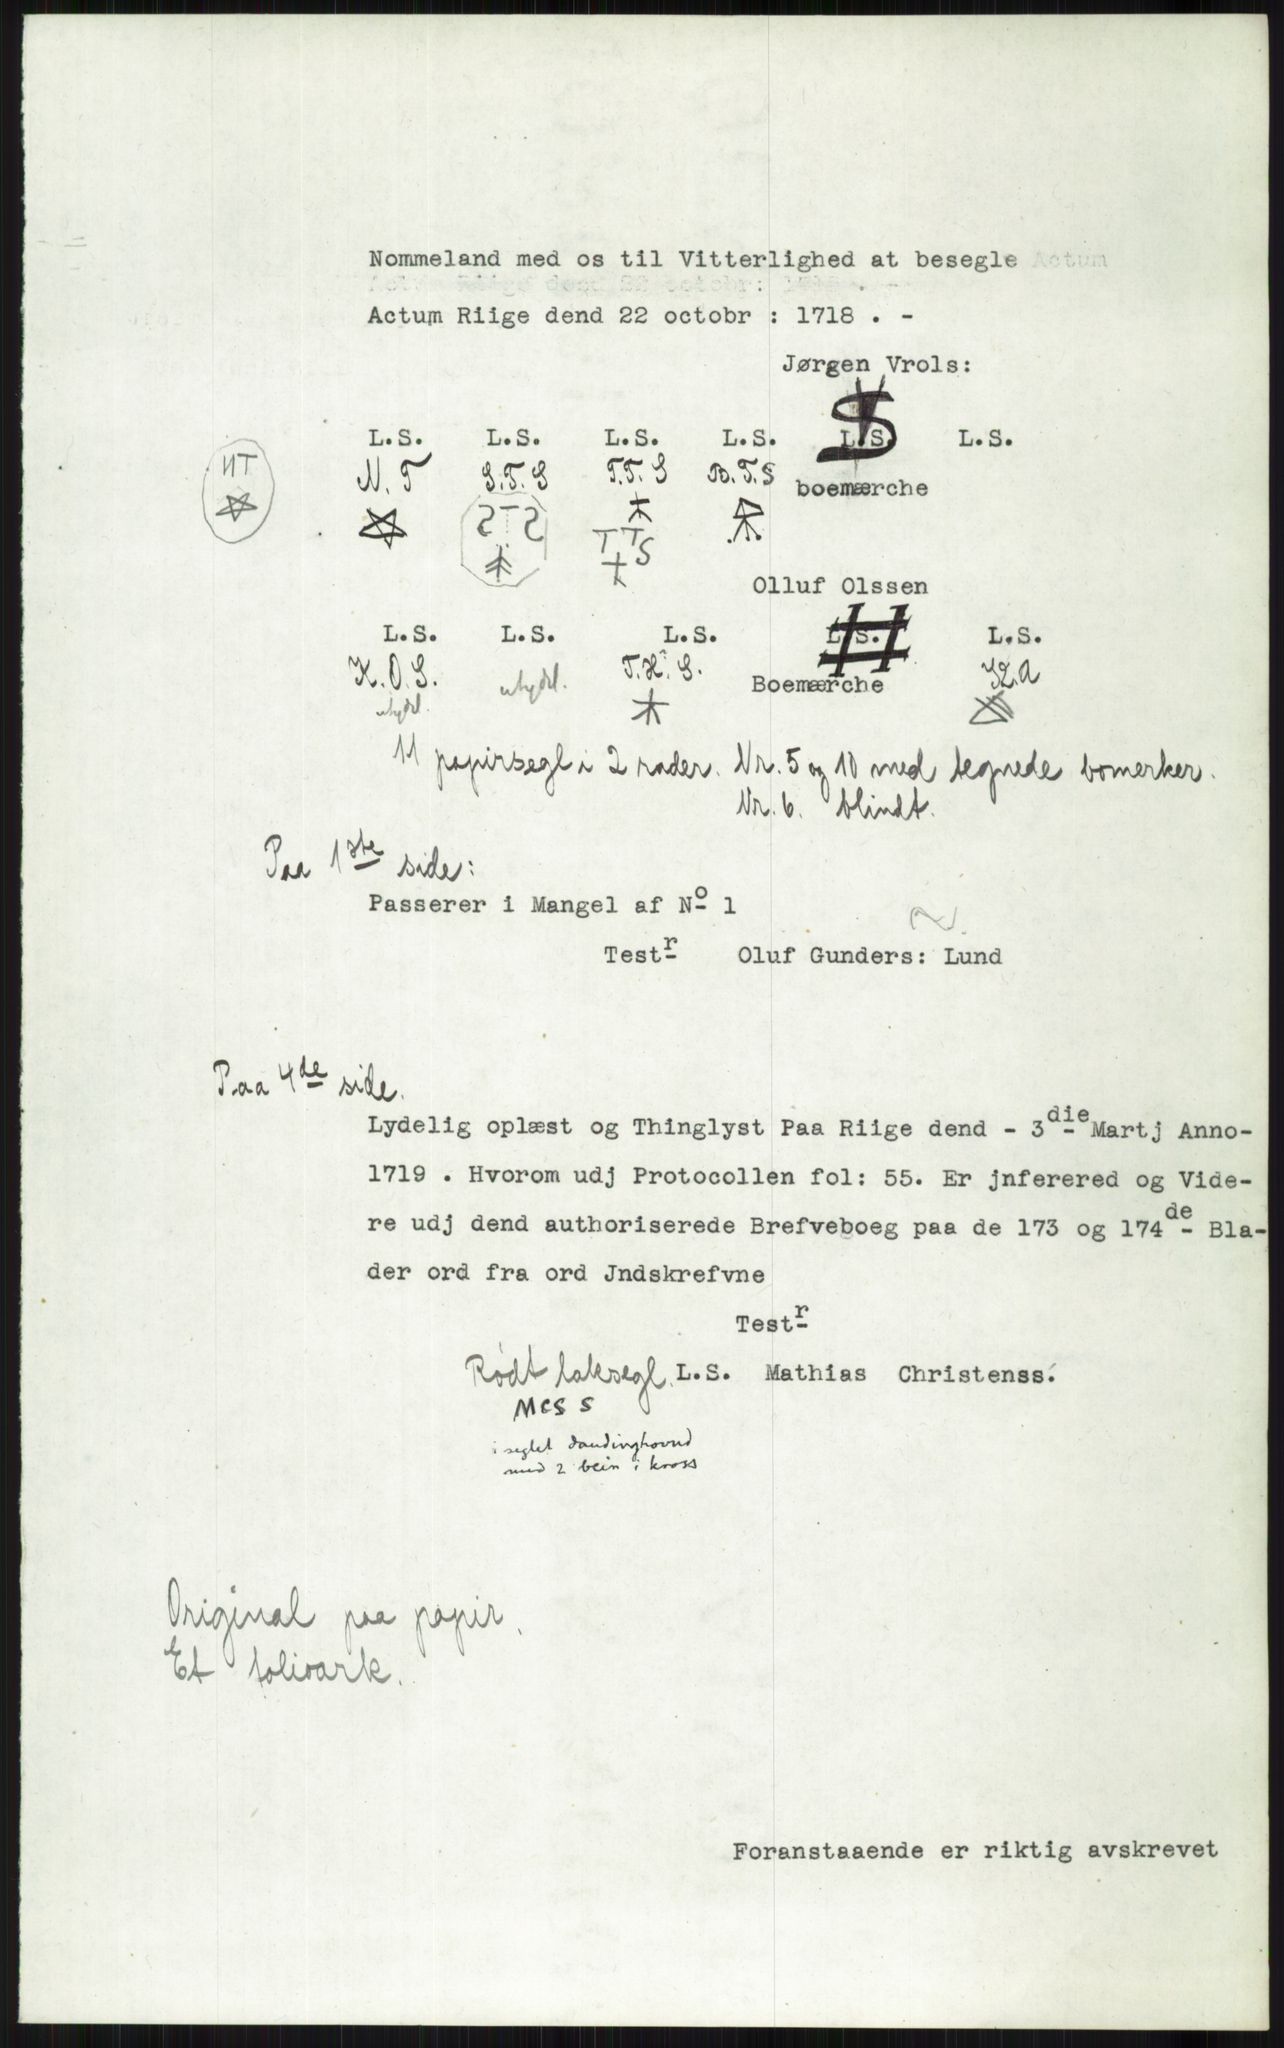 Nommeland med os til Vitterlighed at besegle Actum
Actum Riige dend 22 octobr : 1718 . -
Actum Riige dend 22 octobr : 1718 . -
Jørgen Vrols:
L.S. L.S. L.S. L.S. L.S. L.S.
NT N. T S.T.S T.T.S B.T.S boemærche
STS TTS
Olluf Olssen
L.S. L.S. L.S. L.S. L.S.
K.O.S. utydel. T.H. S. Boemærche
utydel.
11 papirsegl i 2 rader. Nr. 5 og 10 med tegnede bomerker.
Nr. 6. blindt.
Paa 1ste side:
Passerer i Mangel af No 1
Testr Oluf Gunders: Lund
Paa 4de side.
Lydelig oplæst og Thinglyst Paa Riige dend - 3die Martj Anno-
1719 . Hvorom udj Protocollen fol: 55. Er jnferered og Vide-
re udj dend authoriserede Brefveboeg paa de 173 og 174de Bla-
der ord fra ord Jndskrefvne
Testr
Rødt laksegl. L.S. Mathias Christenss.
MCS S
i seglet daudinghovud
med 2 bein i kross
Original paa papir.
Et folioark.
Foranstaaende er riktig avskrevet